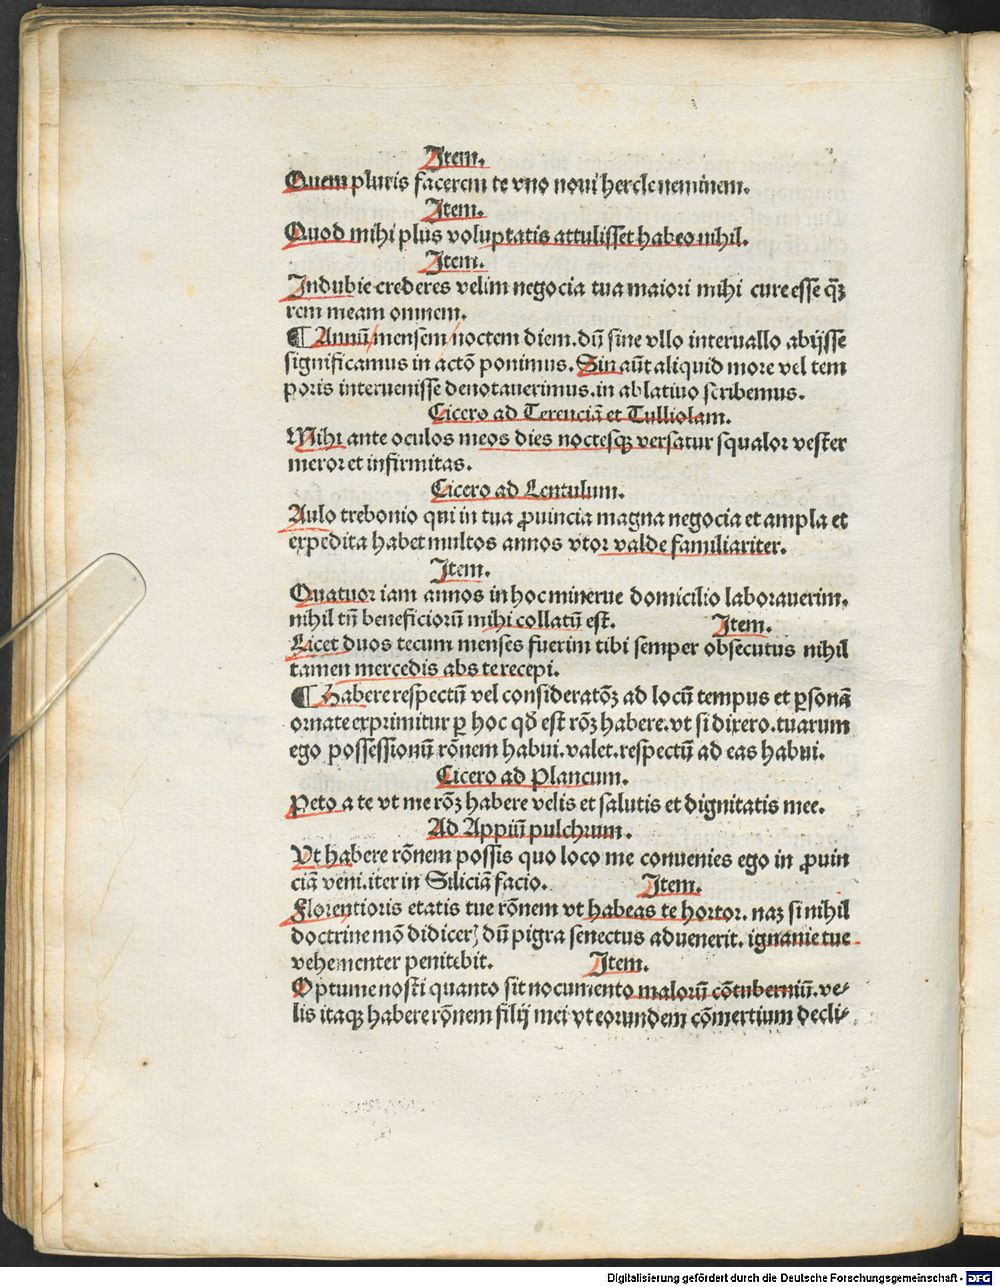 Item.
Quem pluris facerem te vno noui hercle neminem.
Item.
Quod mihi plus voluptatis attulisset habeo nihil.
Item.
Indubie crederes velim negocia tua maiori mihi cure esse qꝫ̄
rem meam omnem.
¶ Annū/mensem/noctem diem.dū sine vllo interuallo abijsse
significamus in actō ponimus. Sin aūt aliquid more vel tem
poris interuenisse denotauerimus.in ablatiuo scribemus.
Cicero ad Terenciā et Tulliolam.
Mihi ante oculos meos dies noctesqꝫ versatur squalor vester
meror et infirmitas.
Cicero ad Lentulum.
Aulo trebonio qui in tua ꝓuincia magna negocia et ampla et
expedita habet multos annos vtor valde familiariter.
Item.
Quatuor iam annos in hoc minerue domicilio laborauerim.
nihil tn̄ beneficiorū mihi collatū est. Item.
Licet duos tecum menses fuerim tibi semper obsecutus nihil
tamen mercedis abs te recepi.
¶ Habere respectū vel consideratōꝫ ad locū tempus et ꝑsonā
ornate exprimitur ꝑ hoc qđ est rōꝫ habere.vt si dixero.tuarum
ego possessionū rōnem habui.valet.respectū ad eas habui.
Cicero ad Plancum.
Peto a te vt me rōꝫ habere velis et salutis et dignitatis mee.
Ad Appiū pulchrum.
Vt habere rōnem possis quo loco me conuenies ego in ꝓuin
ciā veni.iter in Siliciā facio. Item.
Florentioris etatis tue rōnem vt habeas te hortor. naꝫ si nihil
doctrine mō didiceꝝ dū pigra senectus aduenerit. ignauie tue
vehementer penitebit. Item.
Optume nosti quanto sit nocumento malorū cōtuberniū.ve⸗
lis itaqꝫ habere rōnem filij mei vt eorundem cōmertium decli⸗
Digitalisierung gefördert durch die Deutsche Forschungsgemeinschaft - DFG